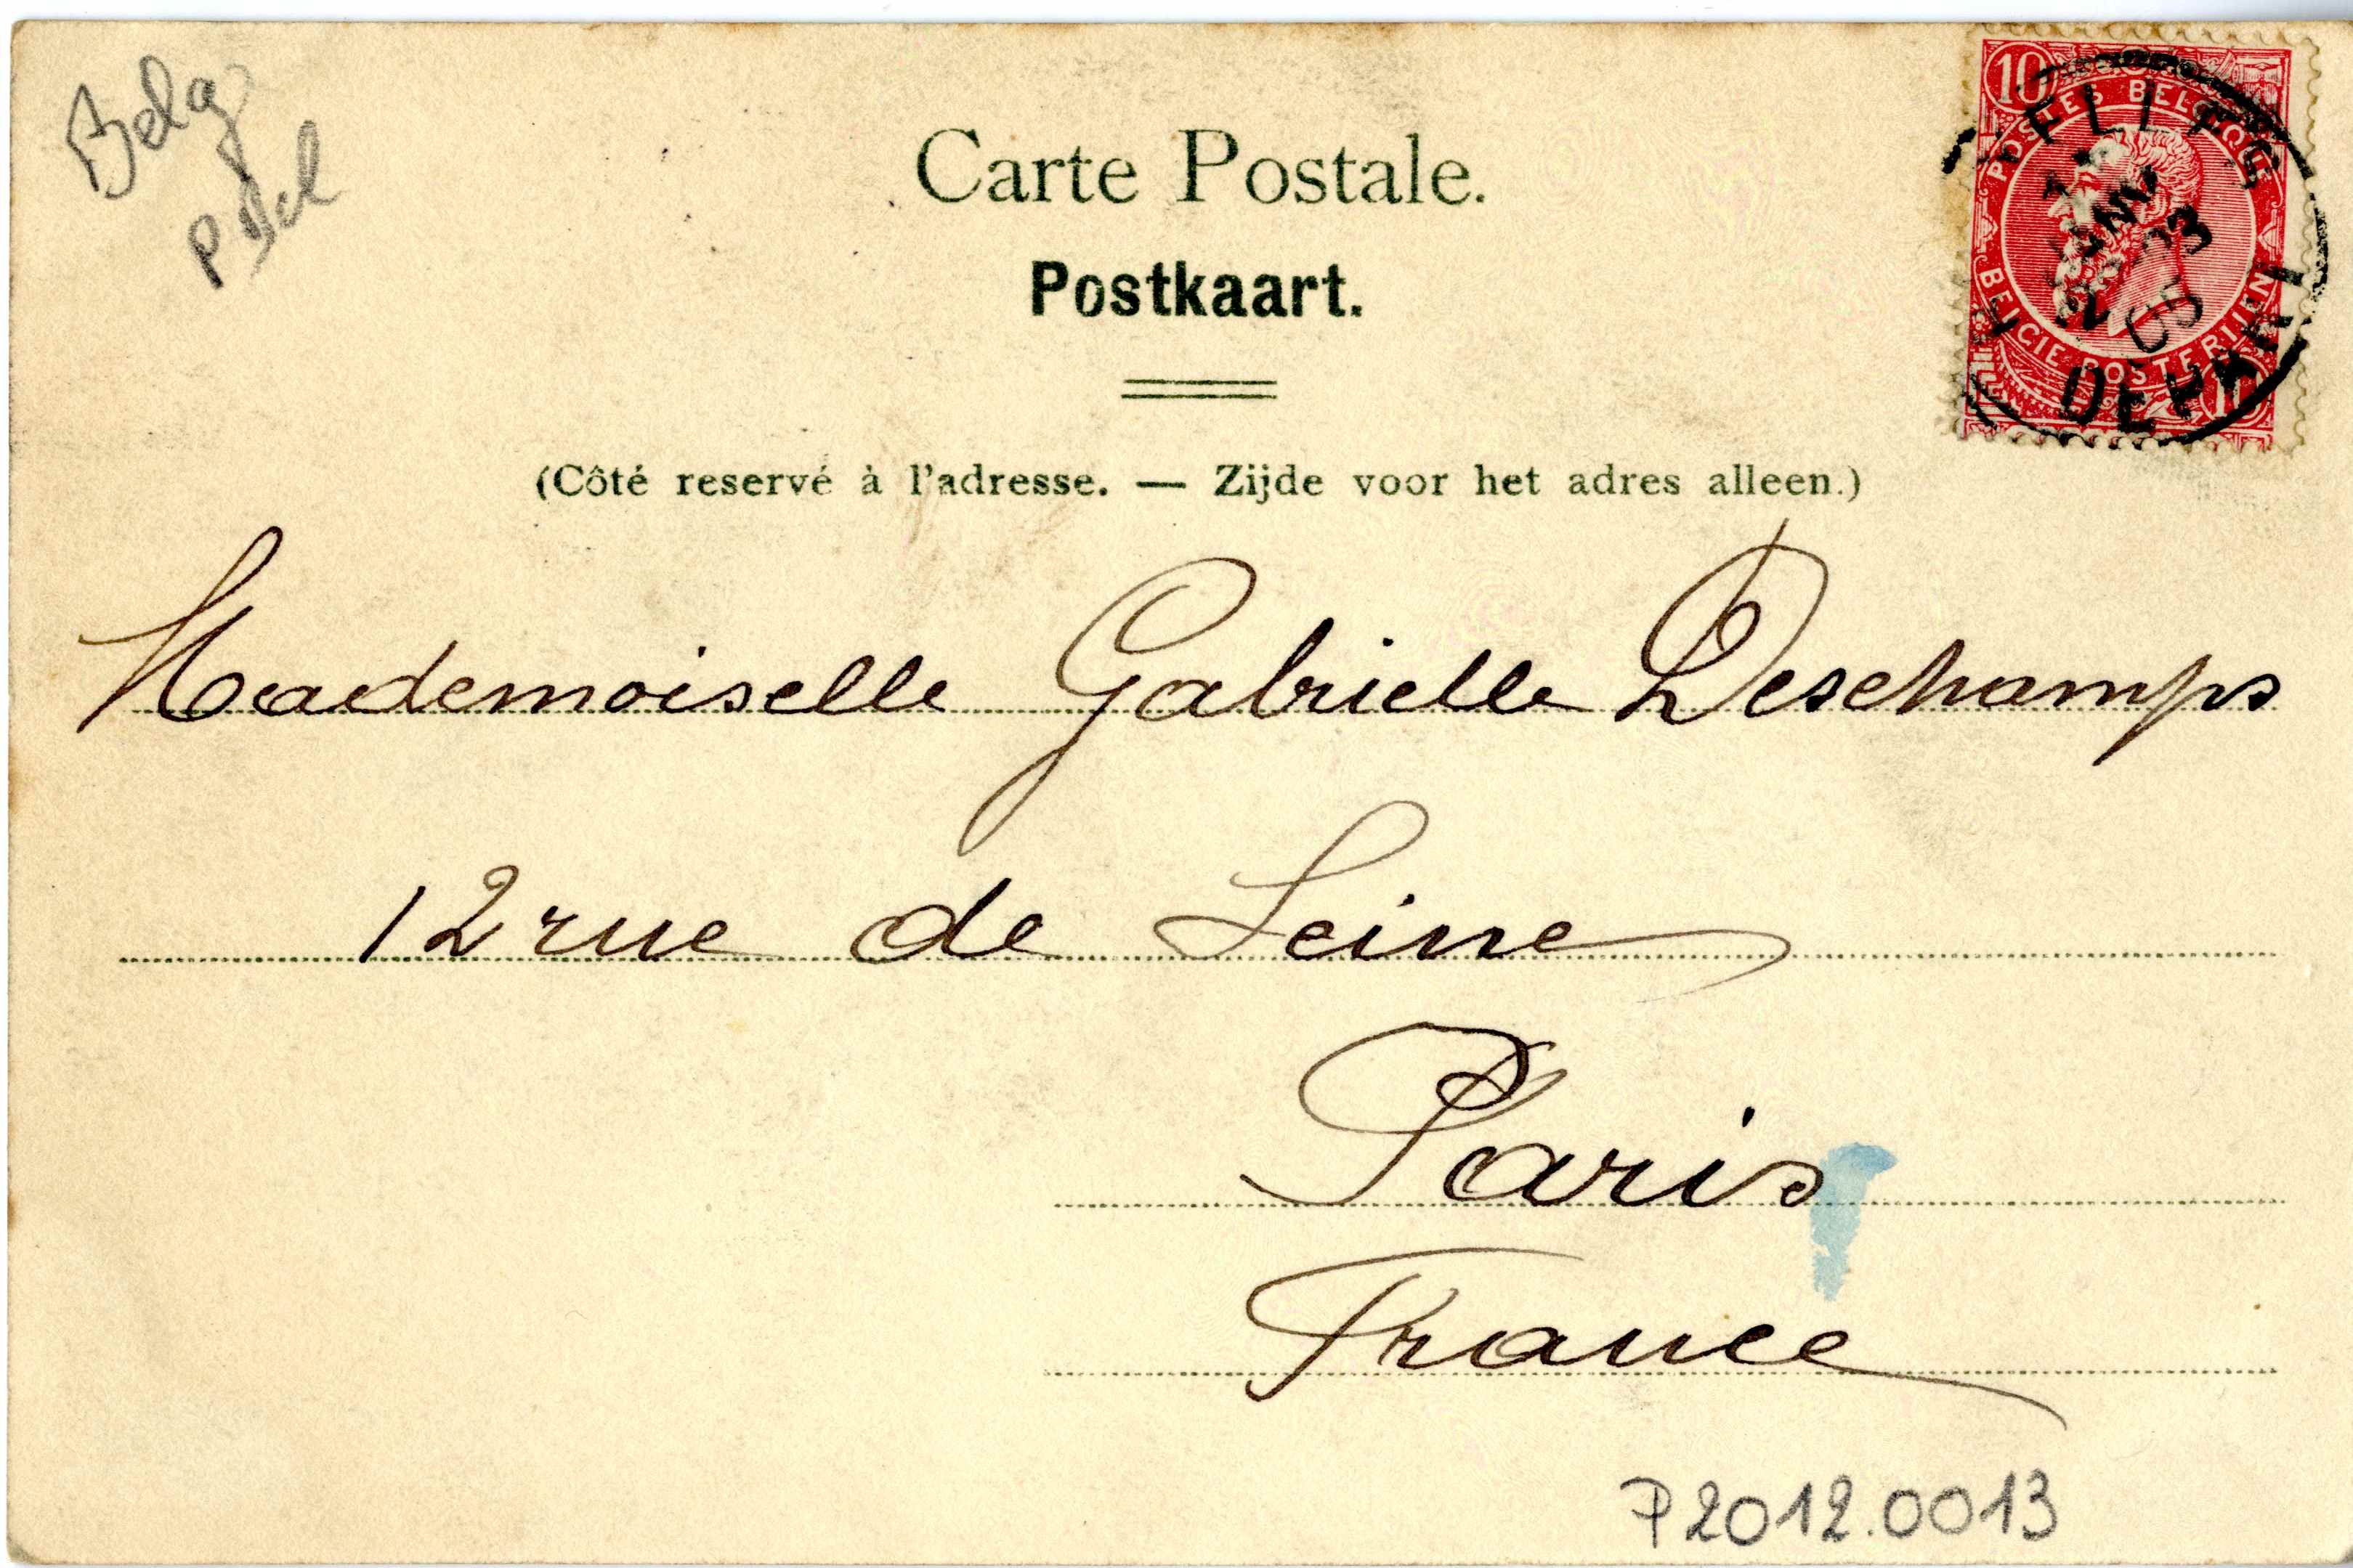 Belg
Carte Postale.
Postkaart.
(Côté reservé à l'adresse. — Zijde voor het adres alleen.)
10
POSTES BELGIQUE
BELGIE POSTERIJEN
10
DEPART
Mademoiselle Gabrielle Deschamps
12 rue de Seine
Paris
France
P2012.0013